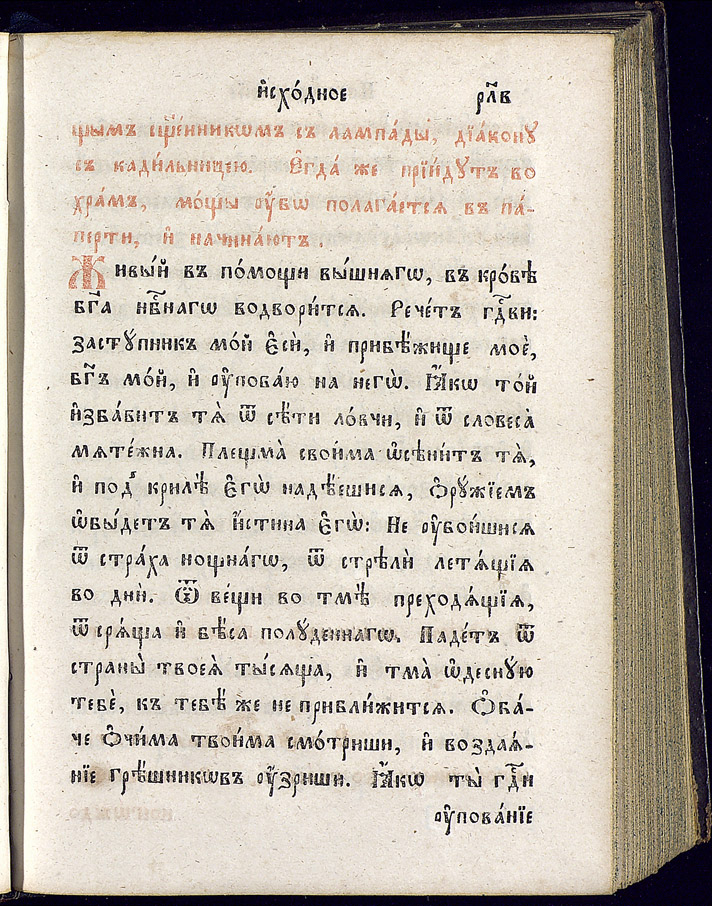 и҆схо́дное рл҃в
щымъ сщ҃е́нникѡмъ съ лампа́ды, дїа́конꙋ
съ кади́льницею. Є҆гда́ же прїи́дꙋтъ во
хра́мъ, мо́щы ᲂу҆́бѡ полага́ется въ па́-
перти, и҆ начина́ютъ.
Живы́й въ по́мощи вы́шнягѡ, въ кро́вѣ
бг҃а нб҃наго̀ водвори́тся. Рече́тъ гдⷭ҇ви:
застꙋ́пникъ мо́й є҆сѝ, и҆ прибѣ́жище моѐ,
бг҃ъ мо́й, и҆ ᲂу҆пова́ю на него̀. Ꙗ҆́кѡ то́й
и҆зба́витъ тѧ̀ ѿ сѣ́ти ло́вчи, и҆ ѿ словеса̀
мѧте́жна. Плещма̀ свои́ма ѡ҆сѣни́тъ тѧ̀,
и҆ под̾ крилѣ̀ є҆гѡ̀ надѣ́ешисѧ, ѻ҆рꙋ́жїемъ
ѡ҆бы́детъ тѧ̀ и҆́стина є҆гѡ̀: Не ᲂу҆бои́шисѧ
ѿ стра́ха нощна́гѡ, ѿ стрѣлы̀ летѧ́щїѧ
во днѝ. Ѿ ве́щи во тмѣ̀ преходѧ́щїѧ,
ѿ срѧ́ща и҆ бѣ́са полꙋ́деннагѡ. Паде́тъ ѿ
страны̀ твоеѧ̀ ты́сѧща, и҆ тма̀ ѡ҆деснꙋ́ю
тебѐ, къ тебѣ́ же не прибли́житсѧ. Ѻ҆ба́-
че ѻ҆чи́ма твои́ма смо́триши, и҆ воздаѧ́-
нїе грѣ́шникѡвъ ᲂу҆́зриши. Ꙗ҆́кѡ ты̀ гдⷭ҇и
ᲂу҆пова́нїе